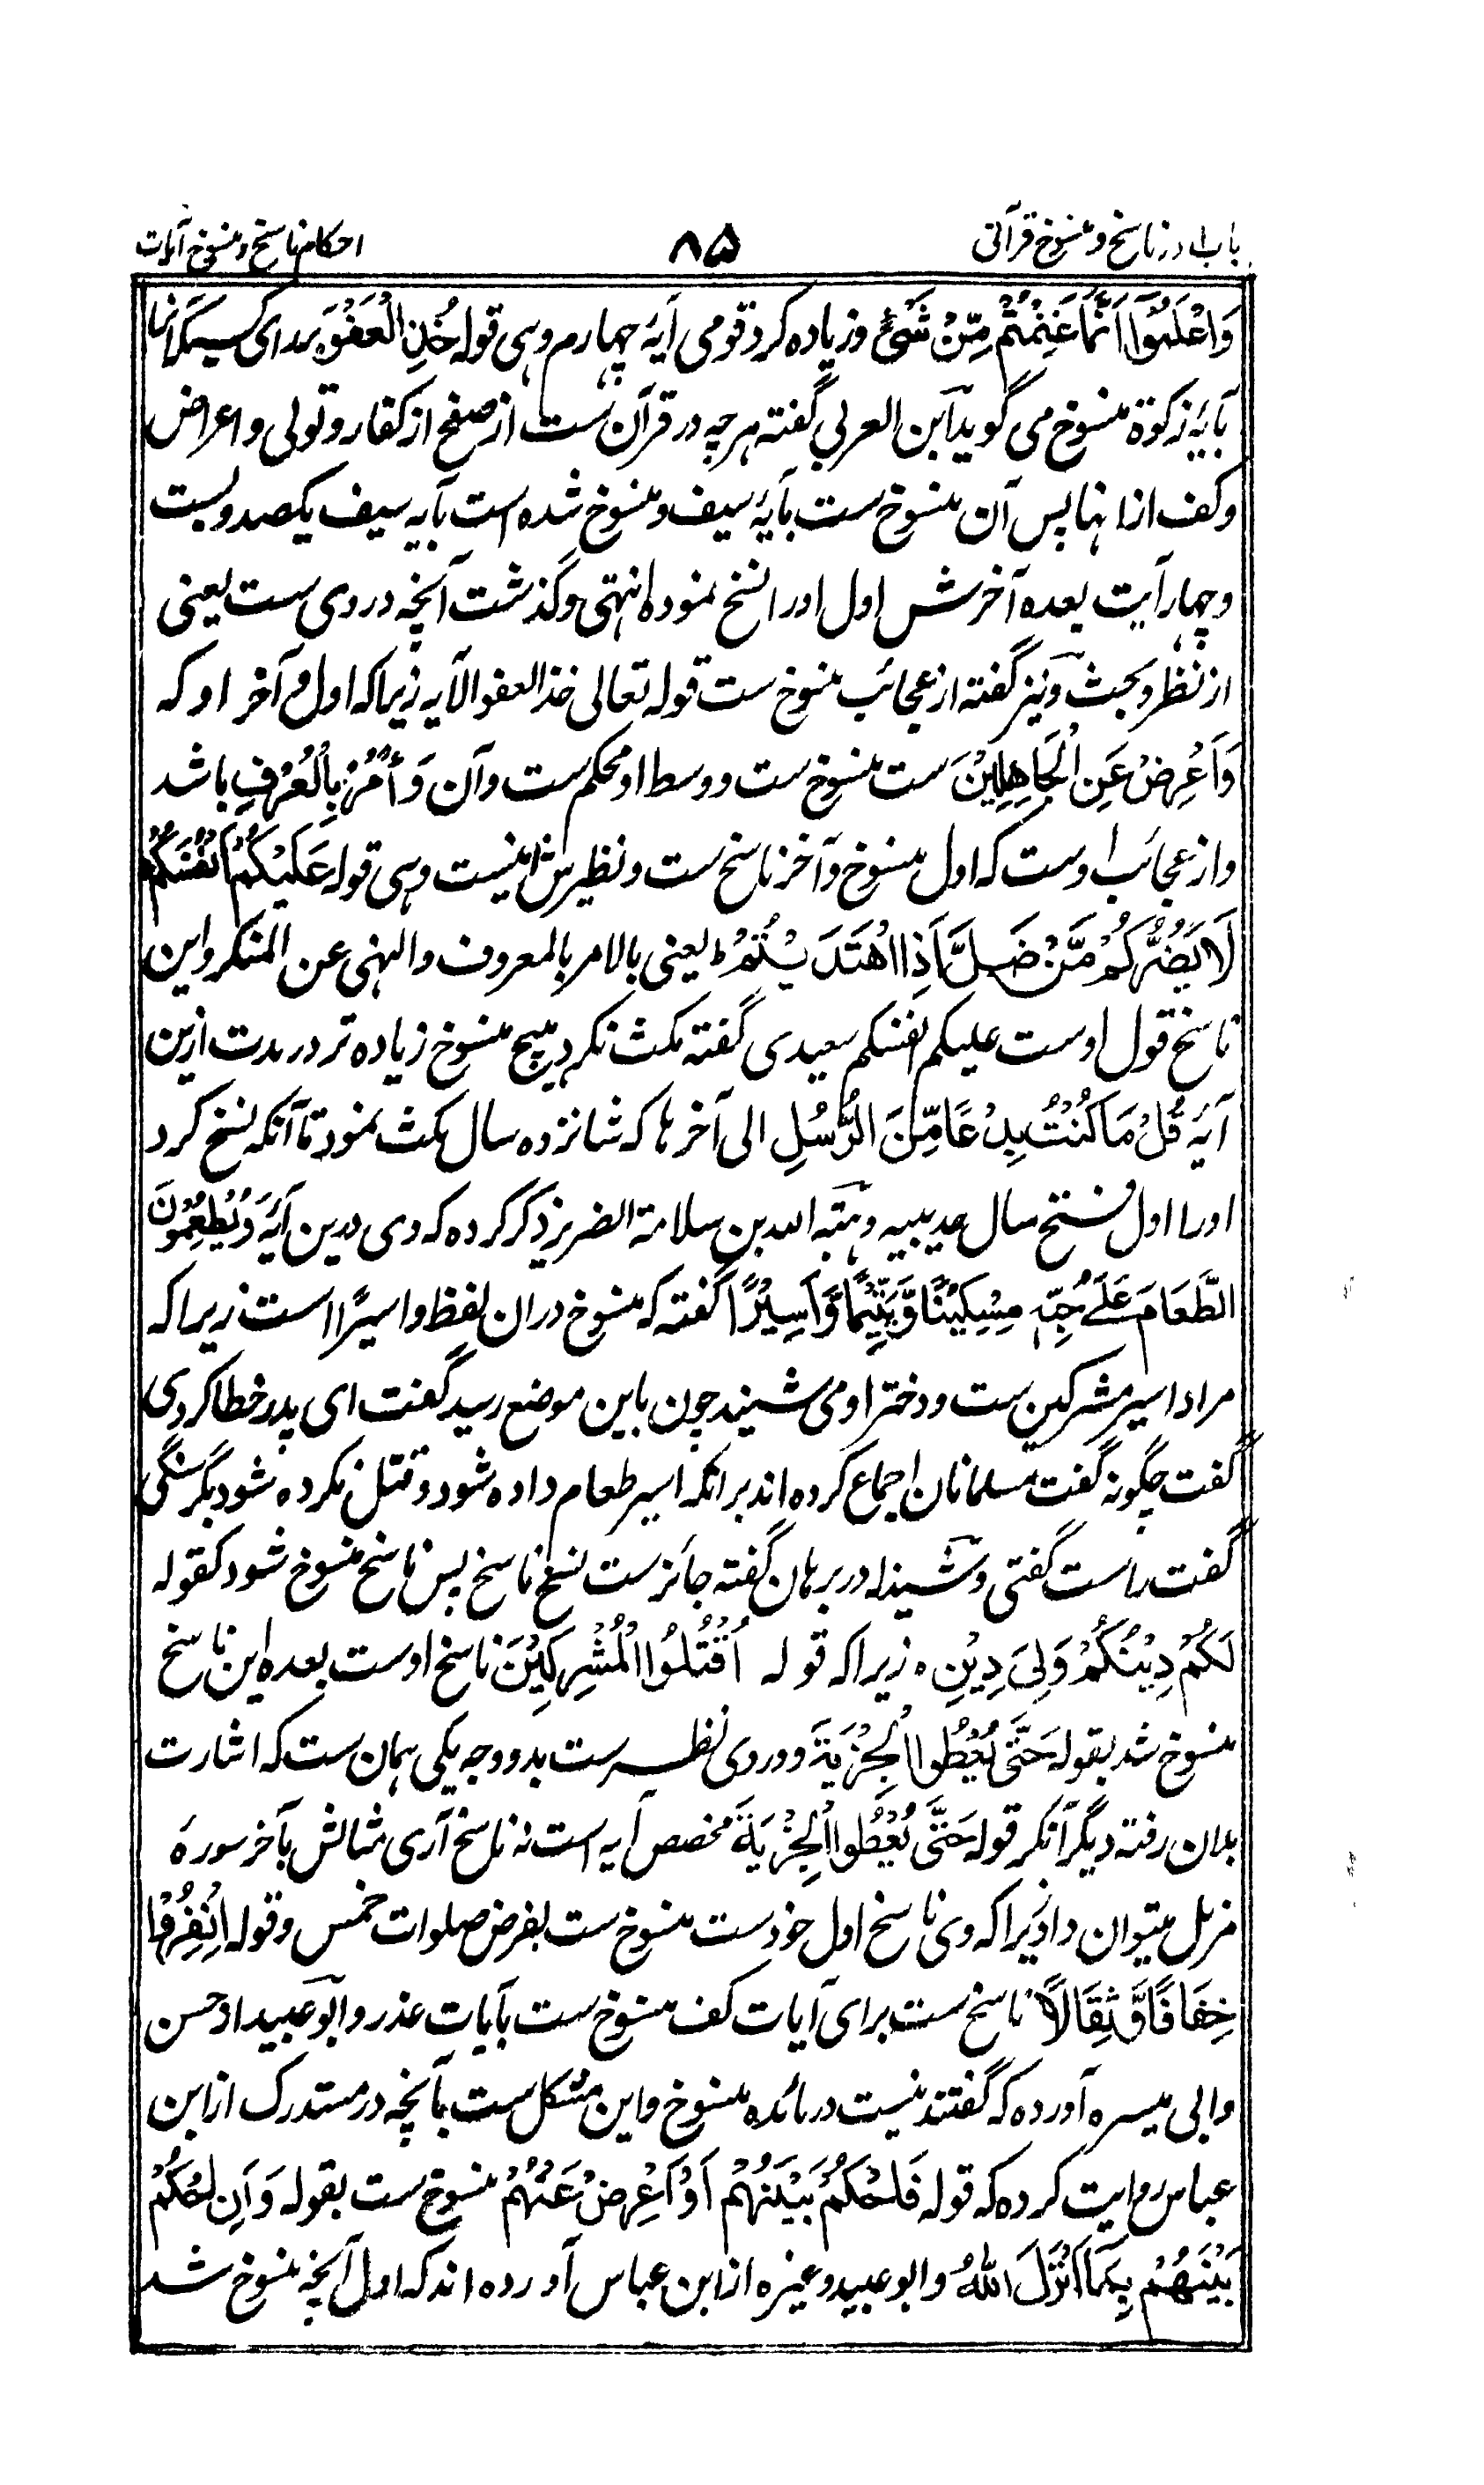 باب ا در ناسخ و منسوخ قرآنی
۸۵
احکام ناسخ و منسوخ آیات
وَاعْلَمُوْا اَنَّمَا غَنِمْتُمْ مِّنْ شَیْءٍ وزیاده کرد قومی آیۀ چهارم و هی قوله خُذِ الْعَفْوَ برای کسیکه آنرا
بآیۀ زکوة منسوخ می گوید ابن العربی گفته هرچه در قرآن ست از صفح از کفار و تولی و اعراض
وکف ازانها پس آن منسوخ ست بآیۀ سیف و منسوخ شده است بآیه سیف یکصد و بست
وچهار آیت بعده آخرش اول اورا نسخ نموده انتهی و گذشت آنچه در وی ست یعنی
از نظر و بحث و نیز گفته از عجائب منسوخ ست قوله تعالی خذ العفو الآیه زیراکه اول و آخر او که
وَاَعْرِضْ عَنِ الْجَاهِلِیْنَ ست منسوخ ست و وسط او محکم ست وآن وَأْمُرْ بِالْعُرْفِ باشد
واز عجائب اوست که اول منسوخ و آخر ناسخ ست و نظیرش نیست وهی قوله عَلَیْکُمْ اَنْفُسَکُمْ
لَا یَضُرُّکُمْ مَّنْ ضَلَّ اِذَا اهْتَدَیْتُمْ ط یعنی بالامر بالمعروف والنهی عن المنکر واین
ناسخ قول اوست علیکم انفسکم سعیدی گفته مکث نکرد هیچ منسوخ زیاده تر در مدت ازین
آیۀ قُلْ مَا کُنْتُ بِدْعًا مِّنَ الرُّسُلِ الی آخرها که شانزده سال مکث نمود تا آنکه نسخ کرد
اورا اول فتح سال حدیبیه و هبة الله بن سلامة الضریر ذکر کرده که وی درین آیۀ وَیُطْعِمُوْنَ
الطَّعَامَ عَلٰی حُبِّهٖ مِسْکِیْنًا وَّیَتِیْمًا وَّاَسِیْرًا گفته که منسوخ دران لفظ واسیرًا است زیراکه
مراد اسیر مشرکین ست و دختر او می شنید چون باین موضع رسید گفت ای پدر خطا کردی
گفت چگونه گفت مسلمانان اجماع کرده اند برانکه اسیر طعام داده شود و قتل نکرده شود بگرسنگی
گفت راست گفتی وشیذله در برهان گفته جائز ست نسخ ناسخ پس ناسخ منسوخ شود کقوله
لَکُمْ دِیْنُکُمْ وَلِیَ دِیْنِ ه زیراکه قوله اُقْتُلُوا الْمُشْرِکِیْنَ ناسخ اوست بعده این ناسخ
منسوخ شد بقوله حَتّٰی یُعْطُوا الْجِزْیَةَ و در وی نظر ست بدو وجه یکی همان ست که اشارت
بدان رفته دیگر آنکه قوله حَتّٰی یُعْطُوا الْجِزْیَةَ مخصص آیه است نه ناسخ آری مثالش بآخر سوره
مزمل میتوان داد زیراکه وی ناسخ اول خودست منسوخ ست بفرض صلوات خمس وقوله اِنْفِرُوْا
خِفَافًا وَّثِقَالًا ناسخ ست برای آیات کف منسوخ ست بآیات عذر و ابو عبید از حسن
وابی میسره آورده که گفتند نیست در مائده منسوخ واین مشکل ست بآنچه در مستدرک از ابن
عباس روایت کرده که قوله فَاحْکُمْ بَیْنَهُمْ اَوْ اَعْرِضْ عَنْهُمْ منسوخ ست بقوله وَاَنِ احْکُمْ
بَیْنَهُمْ بِمَا اَنْزَلَ اللهُ وابو عبید وغیره از ابن عباس آورده اند که اول آنچه منسوخ شد